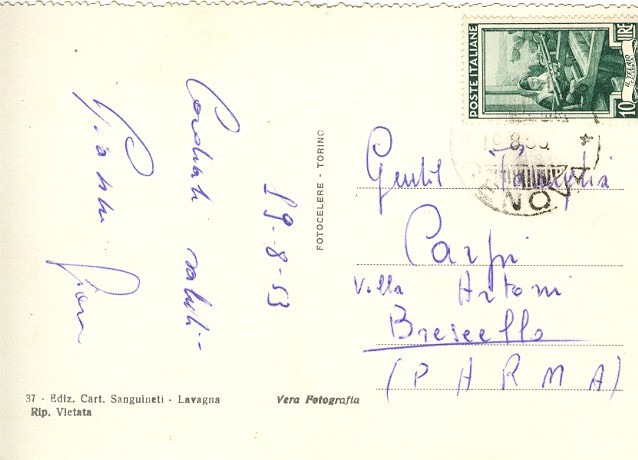 Cordiali saluti
19-8-53
FOTOCELERE - TORINO
POSTE ITALIANE
LIRE
10
Gentil Famiglia
Carpi
Villa Artoni
Brescello
(PARMA)
37 - Ediz. Cart. Sanguineti - Lavagna
Rip. Vietata
Vera Fotografia